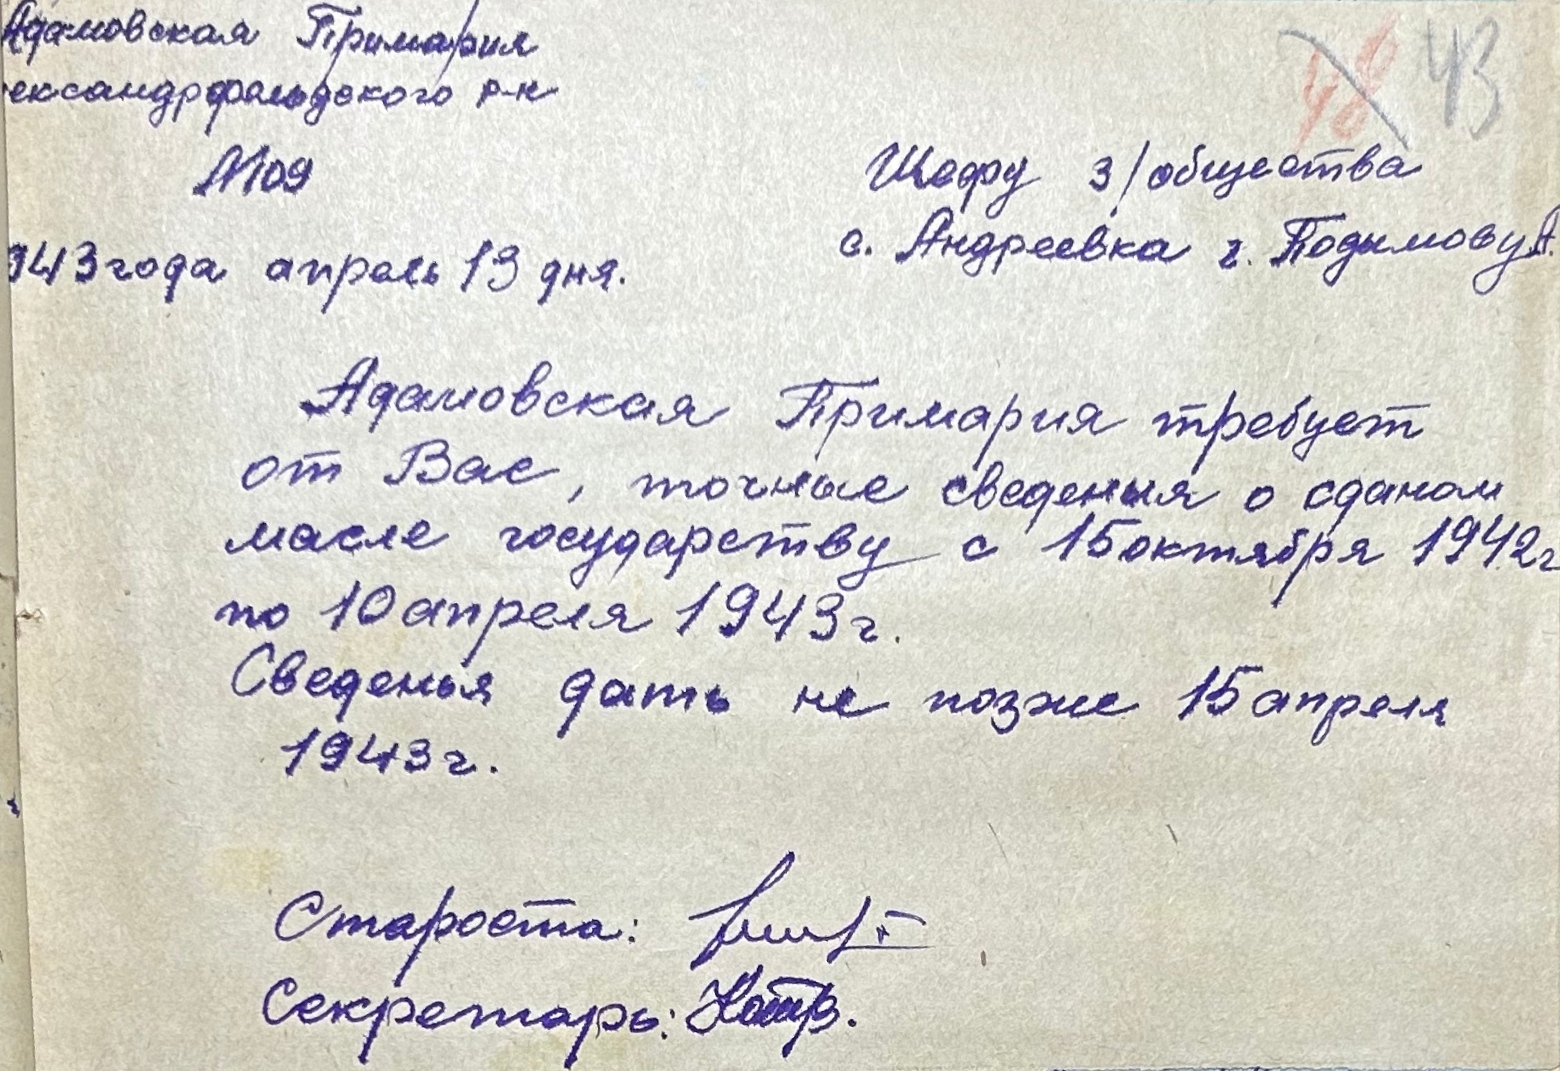 Адамовская Примария
ександрфельдского р-н
№109
943 года апрель 13 дня.
48 43
Шефу з/общества
с. Андреевка г. Подымову А.
Адамовская Примария требует
от Вас, точные сведенья о сданом
масле государству с 15 октября 1942г
по 10 апреля 1943г.
Сведенья дать не позже 15 апреля
1943г.
Староста:
Секретарь: